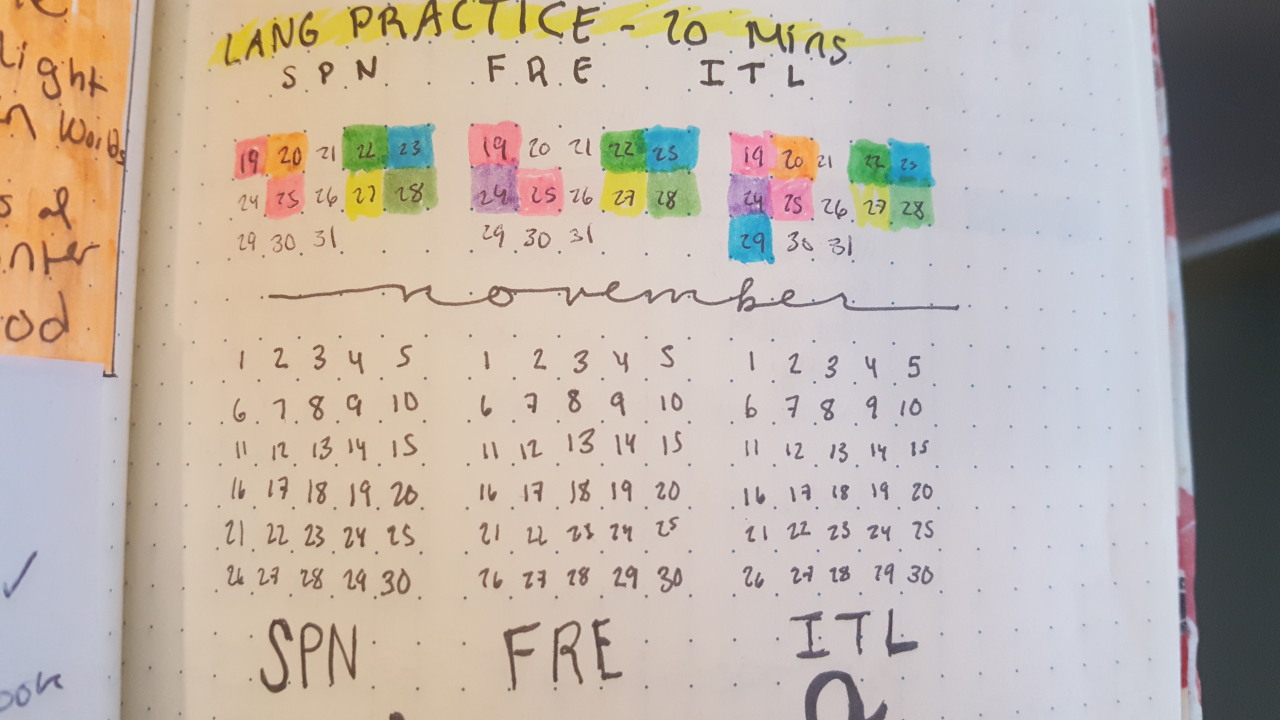 light
LANG PRACTICE - 20 Mins
SPN FRE ITL
19 20 21 22 23 19 20 21 22 23 19 20 21 22 23
24 25 26 27 28 24 25 26 27 28 24 25 26 27 28
29 30 31 29 30 31 29 30 31
november
1 2 3 4 5 1 2 3 4 5 1 2 3 4 5
6 7 8 9 10 6 7 8 9 10 6 7 8 9 10
11 12 13 14 15 11 12 13 14 15 11 12 13 14 15
16 17 18 19 20 16 17 18 19 20 16 17 18 19 20
21 22 23 24 25 21 22 23 24 25 21 22 23 24 25
26 27 28 29 30 26 27 28 29 30 26 27 28 29 30
SPN FRE ITL